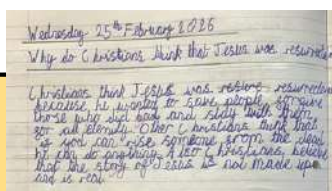 Wednesday 25th February 2026
Why do Christians think that Jesus was resurrected
Christians think Jesus was resurrection
because he wanted to save people, forgive
those who did bad and stay with them
for all eternity. Other Christians think that
if god can rise someone from the dead
he can do anything. Also Christians believe
that the story of Jesus is not made up
and is real.